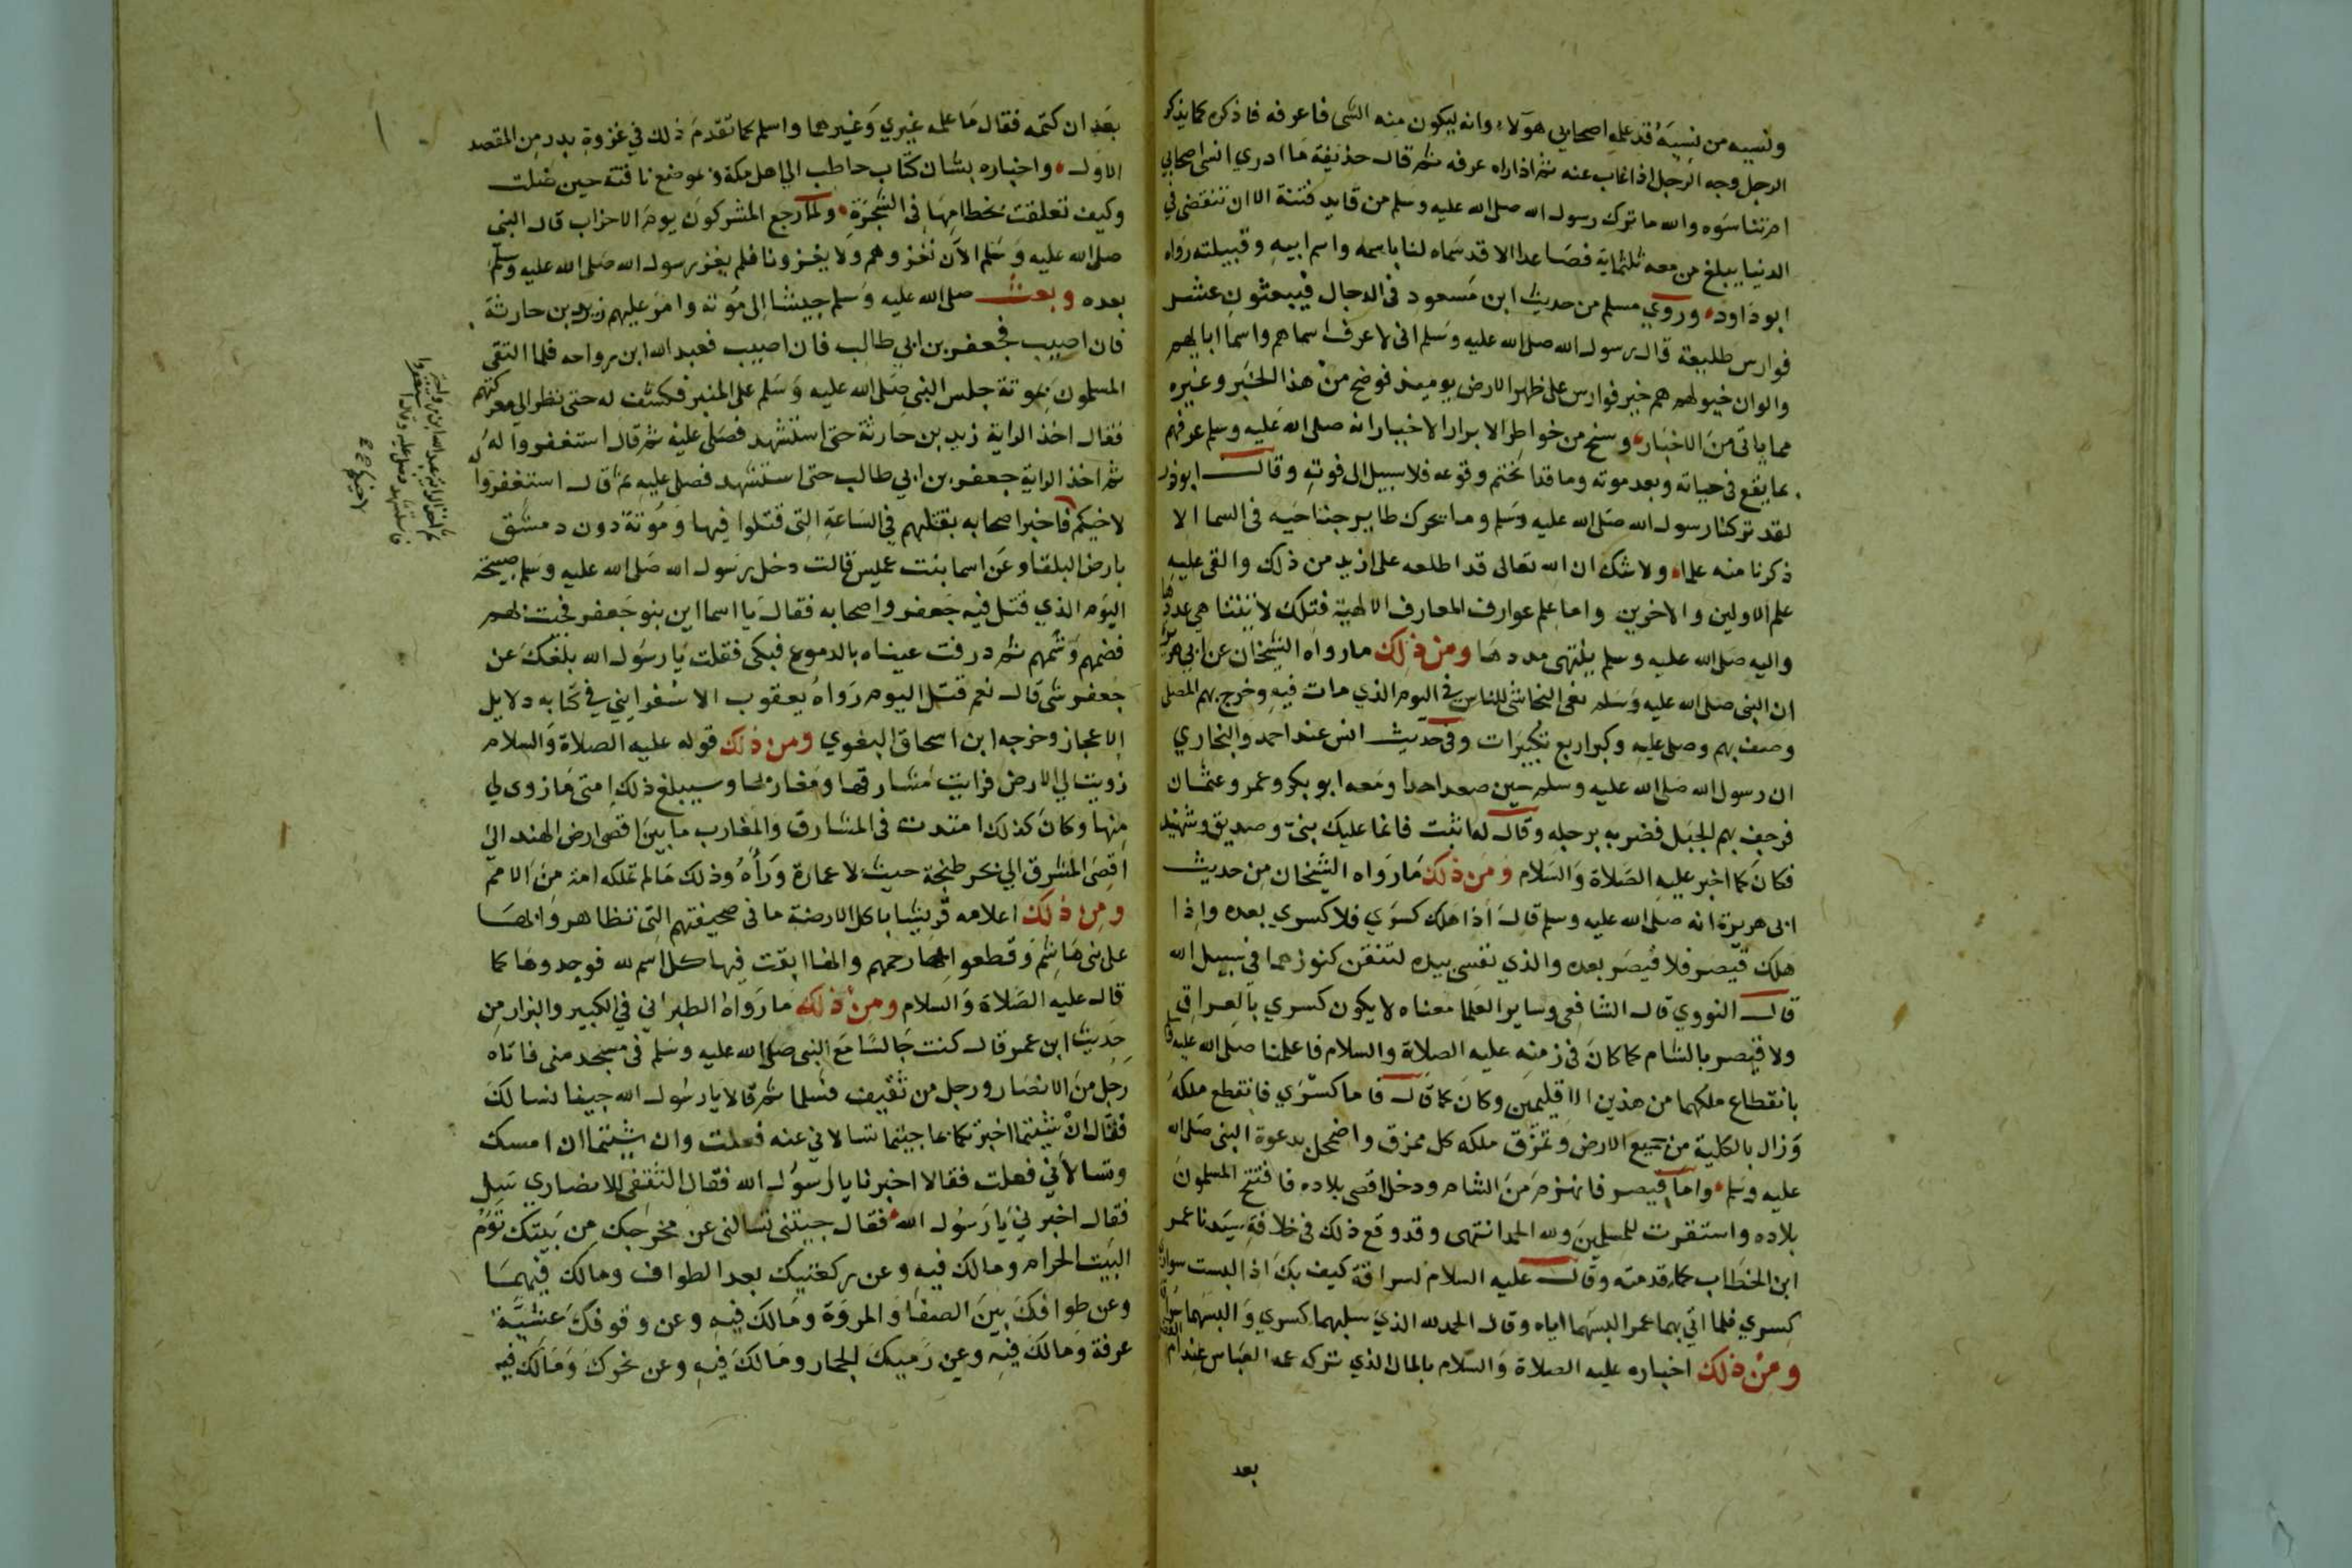 ونسيه من نسيه قد علمه اصحابي هولاء وانه ليكون منه الشى فاعرفه فاذكره كما يذكر
الرجل وجه الرجل اذا غاب عنه ثم اذا راه عرفه ثم قال حذيفة ما ادري انسى اصحابي
ام تناسوه والله ما ترك رسول الله صلى الله عليه وسلم من قايد فتنة الا ان تنقضى في
الدنيا يبلغ من معه ثلثماية فصاعدا الا قد سماه لنا باسمه واسم ابيه وقبيلته رواه
ابو داود وروي مسلم من حديث ابن مسعود فى الدجال فيبعثون عشر
فوارس طليعة قال رسول الله صلى الله عليه وسلم انى لاعرف اسماهم واسما ابايهم
والوان خيولهم هم خير فوارس على ظهر الارض يوميذ فوضح من هذا الخبر وغيره
مما ياتى من الاخبار وسنح من خواطر الابرار الاخيار انه صلى الله عليه وسلم عرفهم
بما يقع فى حياته وبعد موته وما قد انختم وقوعه فلا سبيل الى فوته وقال ابو ذر
لقد تركنا رسول الله صلى الله عليه وسلم وما يحرك طاير جناحيه فى السما الا
ذكرنا منه علما ولا شك ان الله تعالى قد اطلعه على ازيد من ذلك والقى عليه
علم الاولين والاخرين واما علم عوارف المعارف الالهية فتلك لا يتناهي عددها
واليه صلى الله عليه وسلم ينتهى مددها ومن ذلك ما رواه الشيخان عن ابي هريرة
ان النبى صلى الله عليه وسلم نعى النجاشى للناس في اليوم الذي مات فيه وخرج بهم المصلى
وصف بهم وصلى عليه وكبر اربع تكبيرات وفى حديث انس عند احمد والبخاري
ان رسول الله صلى الله عليه وسلم حين صعد احدا ومعه ابو بكر وعمر وعثمان
فرجف بهم الجبل فضربه برجله وقال له اثبت فانما عليك نبي وصديق وشهيد
فكان كما اخبر عليه الصلاة والسلام ومن ذلك ما رواه الشيخان من حديث
ابى هريرة انه صلى الله عليه وسلم قال اذا هلك كسري فلا كسري بعده واذا
هلك قيصر فلا قيصر بعده والذي نفسى بيده لتنفقن كنوزهما في سبيل الله
قال النووي قال الشافعى وساير العلما معناه لا يكون كسري بالعراق
ولا قيصر بالشام كما كان فى زمنه عليه الصلاة والسلام فاعلمنا صلى الله عليه
بانقطاع ملكهما من هذين الاقليمين وكان كما قال فاما كسري فانقطع ملكه
وزال بالكلية من جميع الارض وتمزق ملكه كل ممزق واضمحل بدعوة النبى صلى الله
عليه وسلم واما قيصر فانهزم من الشام ودخل اقصى بلاده فافتتح المسلمون
بلاده واستقرت للمسلمين ولله الحمد انتهى وقد وقع ذلك فى خلافة سيدنا عمر
ابن الخطاب كما قدمته وقال عليه السلام لسراقة كيف بك اذا البست سواري
كسري فلما اتي بهما عمر البسهما اياه وقال الحمد لله الذي سلبهما كسري والبسهما سراقة
ومن ذلك اخباره عليه الصلاة والسلام بالمال الذي تركه عمه العباس عند ام الفضل
بعد
بعد ان كتمه فقال ما علمه غيري وغيرها واسلم كما تقدم ذلك في غزوة بدر من المقصد
الاول واخباره بشان كتاب حاطب الي اهل مكة وبموضع ناقته حين ضلت
وكيف تعلقت بخطامها في الشجرة ولما رجع المشركون يوم الاحزاب قال النبى
صلى الله عليه وسلم الان نغزوهم ولا يغزونا فلم يغز رسول الله صلى الله عليه وسلم
بعده وبعث صلى الله عليه وسلم جيشا الى موتة وامر عليهم زيد بن حارثة
فان اصيب فجعفر بن ابي طالب فان اصيب فعبد الله ابن رواحه فلما التقى
المسلمون بموتة جلس النبى صلى الله عليه وسلم على المنبر فكشف له حتى نظر الى معركتهم
فقال اخذ الراية زيد بن حارثة حتى استشهد فصلى عليه ثم قال استغفروا له
ثم اخذ الراية جعفر بن ابي طالب حتى استشهد فصلى عليه ثم قال استغفروا
لاخيكم فاخبر اصحابه بقتلهم في الساعة التي قتلوا فيها وموتة دون دمشق
بارض البلقا وعن اسما بنت عميس قالت دخل رسول الله صلى الله عليه وسلم صبيحة
اليوم الذي قتل فيه جعفر واصحابه فقال يا اسما اين بنو جعفر فجيت بهم
فضمهم وشمهم ثم درفت عيناه بالدموع فبكى فقلت يا رسول الله بلغك عن
جعفر شى قال نعم قتل اليوم رواه يعقوب الاسفرايني في كتابه دلايل
الاعجاز وخرجه ابن اسحاق البغوي ومن ذلك قوله عليه الصلاة والسلام
زويت لي الارض فرايت مشارقها ومغاربها وسيبلغ ذلك امتى ما زوى لي
منها وكان كذلك امتدت فى المشارق والمغارب ما بين اقصى ارض الهند الي
اقصى المشرق الي بحر طنجة حيث لا عمارة وراه وذلك ما لم تملكه امة من الامم
ومن ذلك اعلامه قريشا باكل الارضة ما فى صحيفتهم التى تظاهروا بها
على بنى هاشم وقطعوا بها رحمهم وانها ابقت فيها كل اسم لله فوجدوها كما
قال عليه الصلاة والسلام ومن ذلك ما رواه الطبراني في الكبير والبزار من
حديث ابن عمر قال كنت جالسا مع النبى صلى الله عليه وسلم فى مسجد منى فاتاه
رجل من الانصار ورجل من ثقيف فسلما ثم قالا يا رسول الله جينا نسالك
فقال ان شيتما اخبرتكما بما جيتما تسالاني عنه فعلت وان شيتما ان امسك
وتسالاني فعلت فقالا اخبرنا يا رسول الله فقال الثقفى للانصاري سل
فقال اخبرني يا رسول الله فقال جيتنى تسالنى عن مخرجك من بيتك توم
البيت الحرام ومالك فيه وعن ركعتيك بعد الطواف ومالك فيهما
وعن طوافك بين الصفا والمروة ومالك فيه وعن وقوفك عشية
عرفة ومالك فيه وعن رميك الجمار ومالك فيه وعن نحرك ومالك فيه
ثم اخذ الراية عبد الله ابن رواحة
فاستشهد فصلى عليه وقال استغفروا
لاخيكم